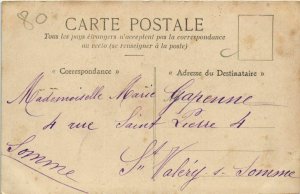 80
CARTE POSTALE
Tous les pays étrangers n'acceptent pas la correspondance
au recto (se renseigner à la poste)
« Correspondance »
« Adresse du Destinataire »
Mademoiselle Marie Gapenne
4 rue Saint Pierre 4
St Valéry s- Somme
Somme